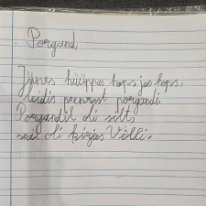 Porgand
Jänes hüppas hops ja hops,
leidis peenrast porgandi.
Porgandil oli silt,
seal oli kirjas Villi.